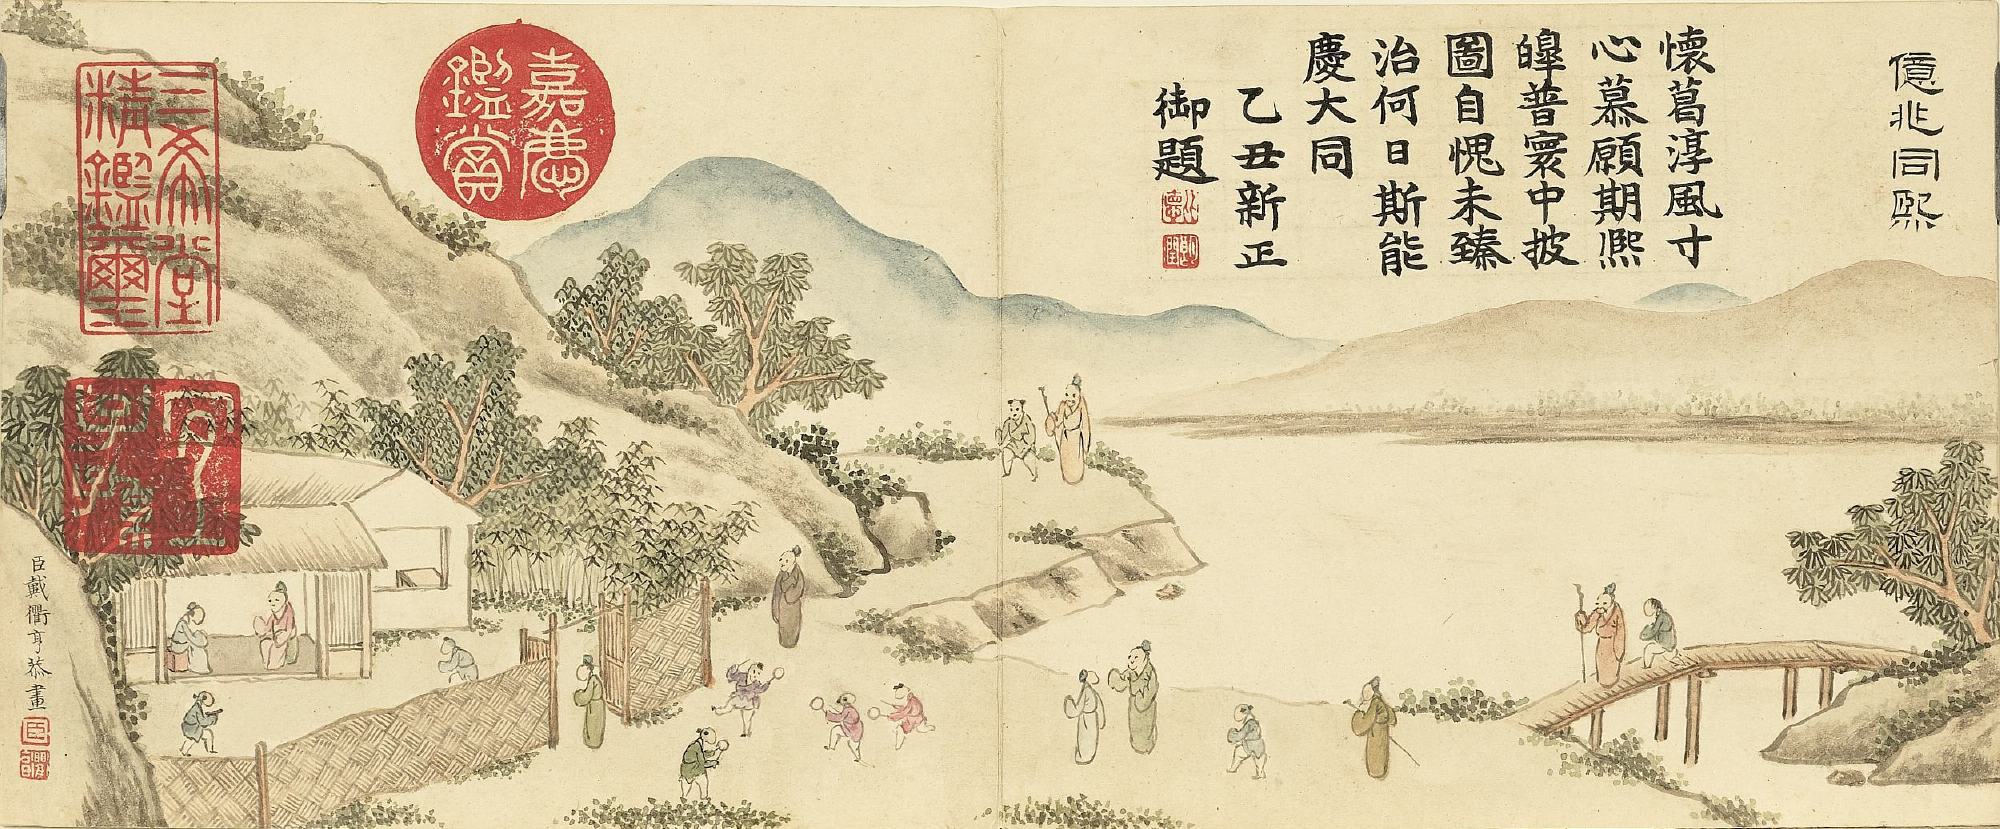 億兆同熙
懷葛淳風寸
心慕願期熈
皥普寰中披
圖自愧未臻
治何日斯能
慶大同
乙丑新正
御題
嘉慶
鑑賞
三希堂
精鑑璽
宜子
孫
臣戴衢亨恭畫
臣